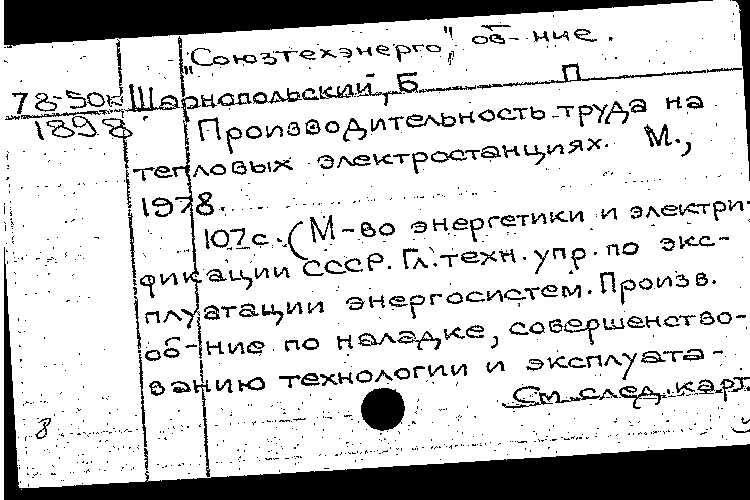 "Союзтехэнерго", об-ние.
78-50к Шарнопольский, Б П
1898 Производительность труда на
тепловых электростанциях. М.,
1978.
107с. (М-во энергетики и электри-
фикации СССР. Гл. техн. упр. по экс-
плуатации энергосистем. Произв.
об-ние по наладке, совершенство-
ванию технологии и эксплуата-
См. след. карт.
8